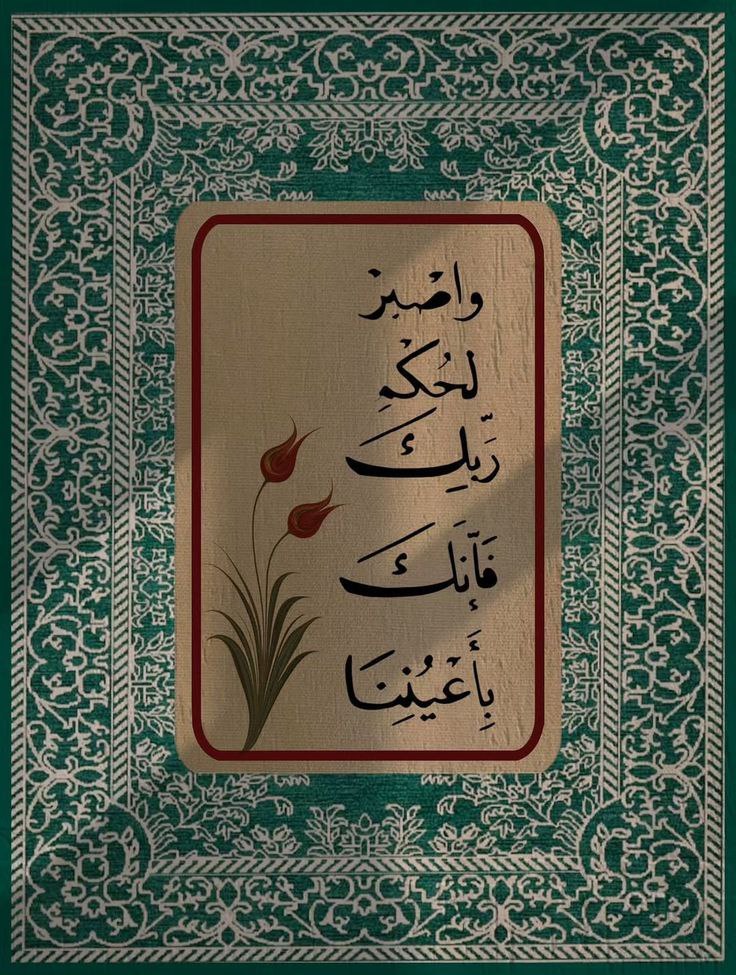 واصْبرْ
لحُكْمِ
رَبِّكَ
فَإِنَّكَ
بِأَعْيُنِنَا